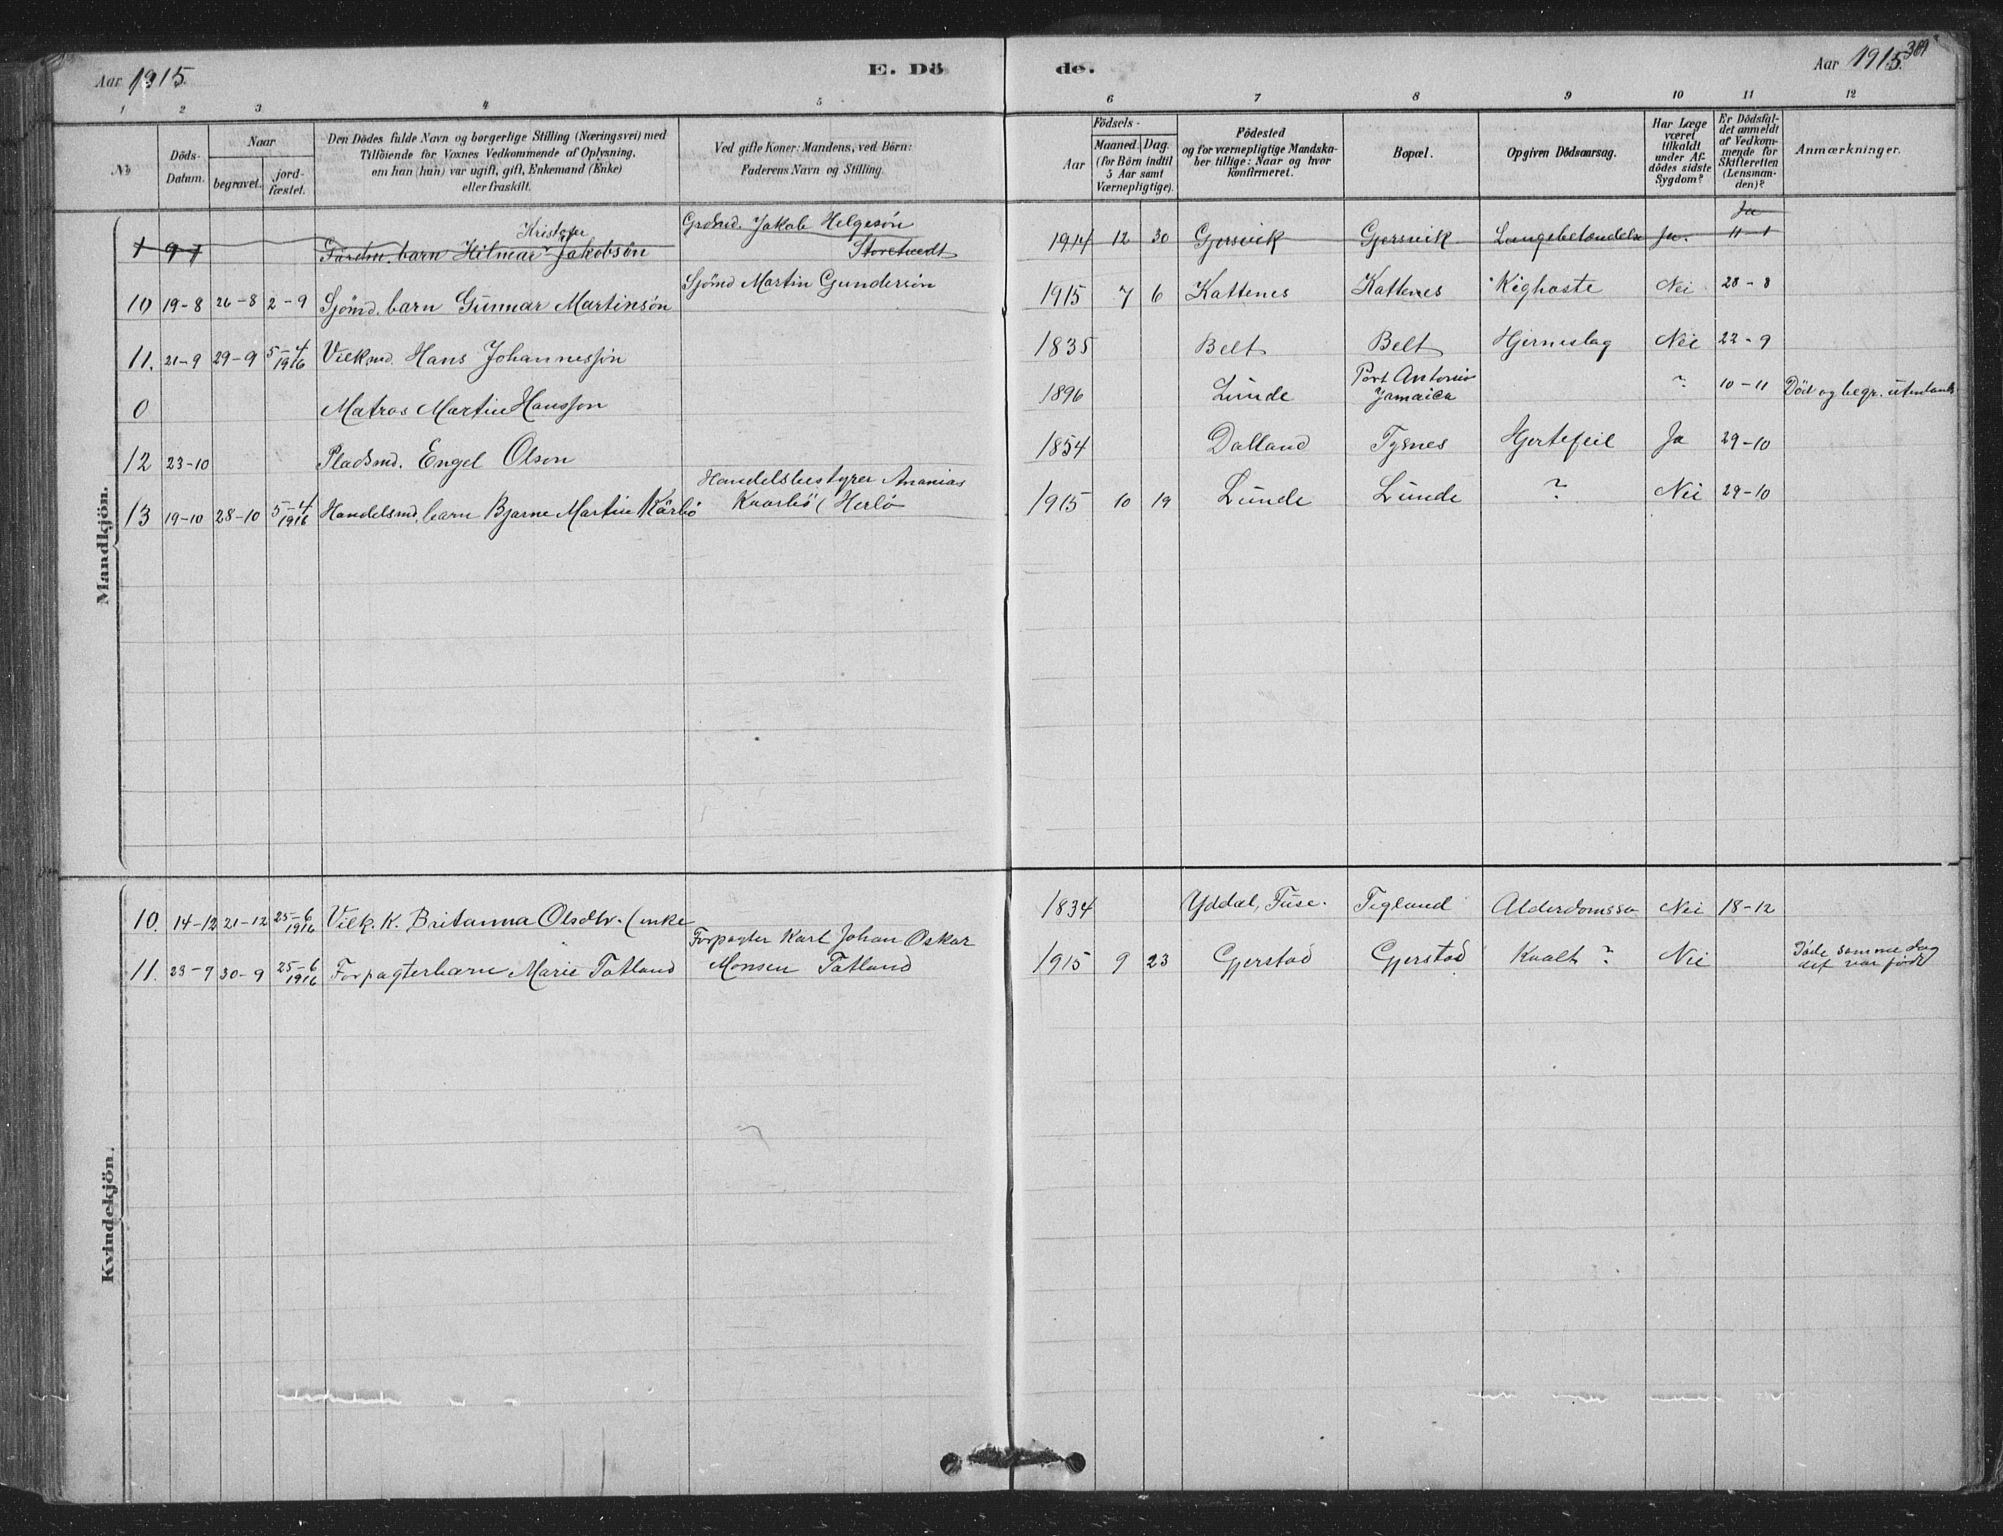 Aar 1915.
E. Dö
de.
Aar 1915.
389
1 2 3 4 5 6 7 8 9 10 11 12
No
Döds-Datum.
Naar
begravet.
jord-fæstet.
Den Dödes fulde Navn og borgerlige Stilling (Næringsvei) med
Tilföiende for Voxnes Vedkommende af Oplysning,
om han (hun) var ugift, gift, Enkemand (Enke)
eller fraskilt.
Ved gifte Koner: Mandens, ved Börn:
Faderens Navn og Stilling.
Födsels-
Aar
Maaned. Dag.
(for Börn indtil
5 Aar samt
Værnepligtige).
Födested
og for værnepligtige Mandska-
ber tillige: Naar og hvor
konfirmeret.
Bopæl.
Opgiven Dödsaarsag.
Har Læge
været
tilkaldt
under Af-
dödes sidste
Sygdom?
Er Dödsfal-
det anmeldt
af Vedkom-
mende for
Skifteretten
(Lensman-
den)?
Anmærkninger.
Mandkjön.
Kristofer Grdmd. Jakob Helgesön Ja
1 9-1 Gardm. barn Hilmar Jakobsön Storetvedt 1914 12 30 Gjersvik Gjersvik Lungebetændelse Ja. 11-1
Sjömd Martin Gundersön
10 19-8 26-8 2-9 Sjömd. barn Gunnar Martinsön 1915 7 6 Kattenes Kattenes Kighoste Nei 28-8
11. 21-9 29-9 5-4 1916 Vilkmd. Hans Johannessön 1835 Belt Belt Hjerneslag Nei 22-9
0 Matros Martin Hansson 1896 Lunde Port Antonio Jamaica ? 10-11 Död og begr. utenlands
12 23-10 Pladsmd. Engel Olson 1854 Dalland Tysnes Hjertefeil Ja 29-10
Handelsbestyrer Ananias
13 19-10 28-10 5-4 1916 Handelsmd. barn Bjarne Martin Kårbö Kaarbö (Herlö 1915 10 19 Lunde Lunde ? Nei 29-10
Kvindekjön.
10. 14-12 21-12 25-6 1916 Vilk. K. Britanna Olsdtr. (enke 1834 Yddal, Fuse. Tegland Alderdomssv Nei 18-12
Forpagter Karl Johan Oskar
11. 23-9 30-9 25-6 1916 Forpagterbarn Marie Tatland Monsen Tatland 1915 9 23 Gjerstad Gjerstad Kvalt ? Nei Döde samme dag
det var född